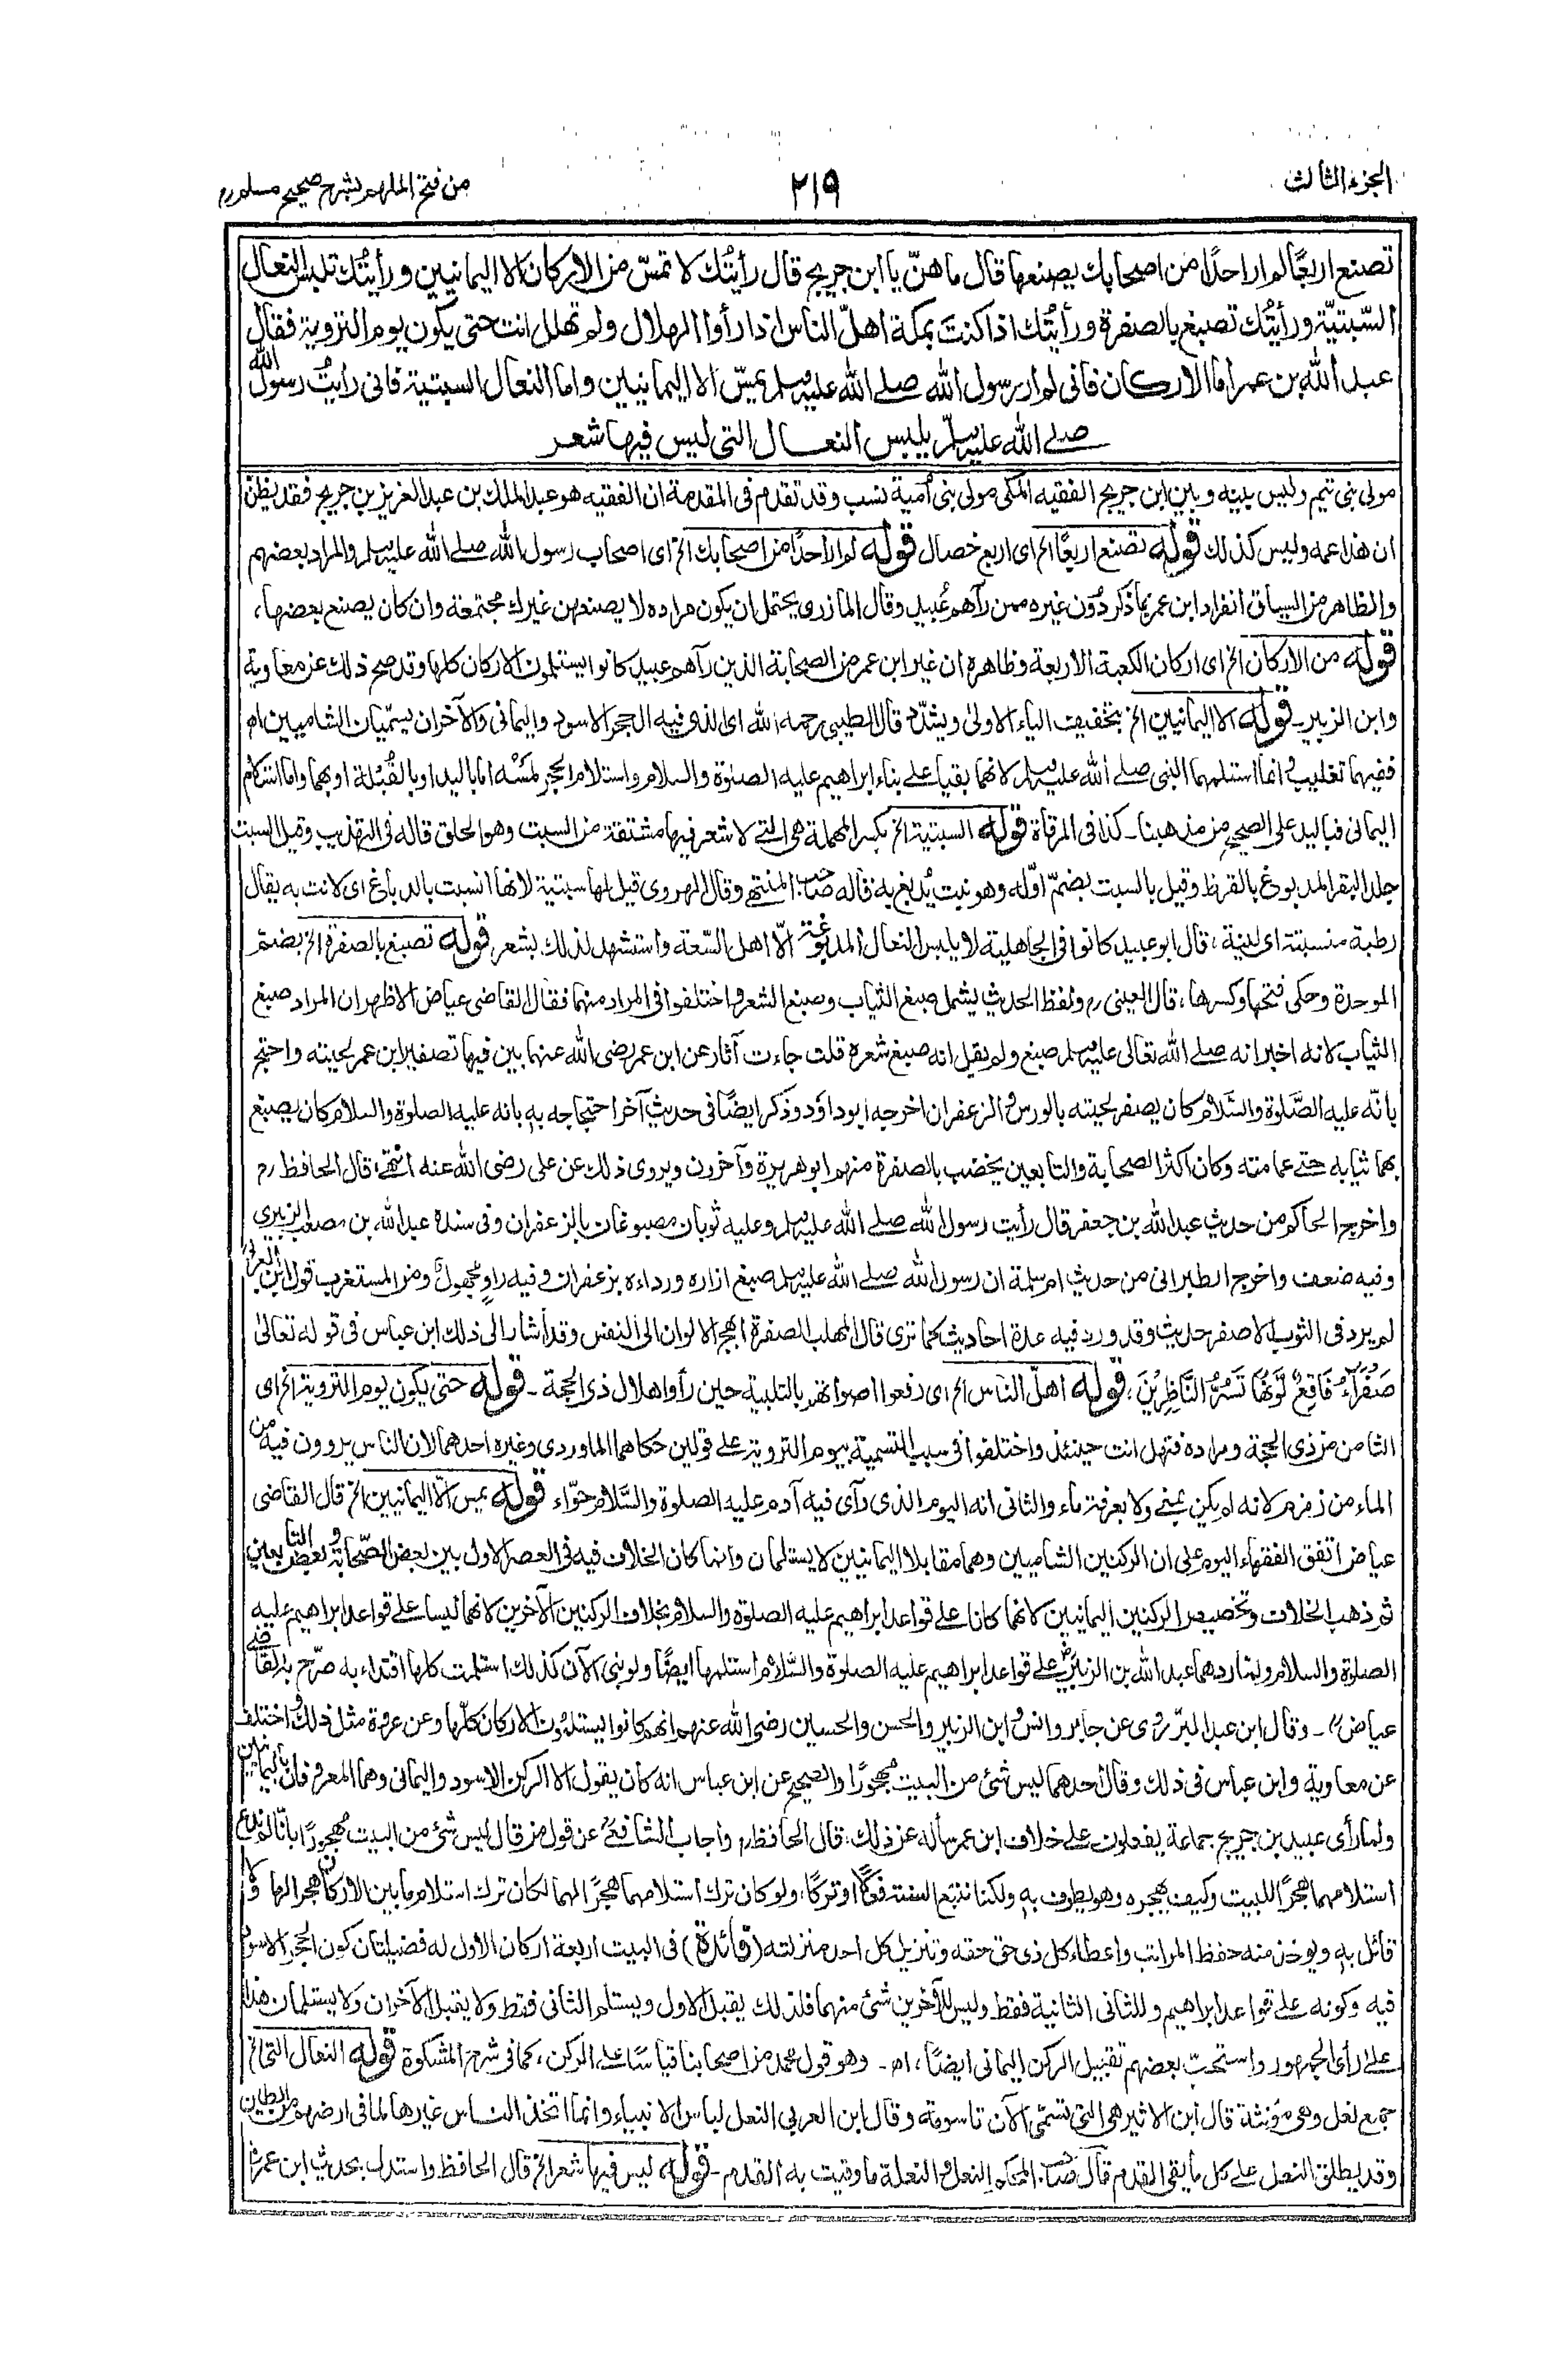 الجزء الثالث
٢١٩
من فتح الملهم بشرح صحيح مسلم رح
تصنع اربعًا لم ار احدًا من اصحابك يصنعها قال ما هنّ يا ابن جريج قال رأيتُك لا تمسّ من الاركان الا اليمانيين ورأيتُك تلبس النعال
السّبتيّة ورأيتُك تصبغ بالصفرة ورأيتُك اذا كنتَ بمكة اهلّ الناس اذا رأوا الهلال ولم تهلل انت حتى يكون يوم التروية فقال
عبد الله بن عمر اما الاركان فانى لم ار رسول الله صلے الله عليه وسلم يمسّ الا اليمانيين واما النعال السبتية فانى رأيتُ رسول الله
صلے الله عليه وسلم يلبس النعال التى ليس فيها شعر
مولى بنى تيم وليس بينه وبين ابن جريج الفقيه المكى مولى بنى أمية نسب وقد تقدم فى المقدمة ان الفقيه هو عبد الملك بن عبد العزيز بن جريج فقد يظن
ان هذا عمه وليس كذلك قوله تصنع اربعًا الخ اى اربع خصال قوله لم ار احدًا من اصحابك الخ اى اصحاب رسول الله صلے الله عليه وسلم والمراد بعضهم
والظاهر من السياق انفراد ابن عمر بما ذكر دُون غيره ممن رآهم عُبيد وقال المازرى يحتمل ان يكون مراده لا يصنعهن غيرك مجتمعة وان كان يصنع بعضها،
قوله من الاركان الخ اى اركان الكعبة الاربعة وظاهره ان غير ابن عمر من الصحابة الذين رآهم عبيد كانوا يستلمون الاركان كلها وقد صح ذلك عن معاوية
وابن الزبير۔ قوله الا اليمانيين الخ بتخفيف الياء الاولىٰ ويشدّد قال الطيبى رحمه الله اى الذى فيه الحجر الاسود واليمانى والآخران يسمّيان الشاميين اھ
ففيهما تغليب وانما استلمهما النبى صلے الله عليه وسلم لانهما بقيا على بناء ابراهيم عليه الصلوٰة والسلام واستلام الحجر لمسُه اما باليد او بالقُبْلة او بهما واما استلام
اليمانى فباليد على الصحيح من مذهبنا۔ كذا فى المرقاة قوله السبتية الخ بكسر المهملة هى التے لا شعر فيها مشتقة من السبت وهو الحلق قاله فى التهذيب وقيل السبت
جلد البقر المدبوغ بالقرظ وقيل بالسبت بضمّ اوّله وهو نبت يُدبغ به قاله صاحب المنتهے وقال الهروى قيل لها سبتية لانها انسبت بالدباغ اى لانت به يقال
رطبة منسبتة اى لينة، قال ابو عبيد كانوا فى الجاهلية لا يلبس النعال المدبوغة الّا اهل السّعة واستشهد لذلك بشعر قوله تصبغ بالصفرة الخ بضمّ
الموحدة وحكى فتحها وكسرها، قال العينى رح ولفظ الحديث يشمل صبغ الثياب وصبغ الشعر واختلفوا فى المراد منهما فقال القاضى عياض الاظهر ان المراد صبغ
الثياب لانه اخبر انه صلے الله تعالى عليه وسلم صبغ ولم يقل انه صبغ شعره قلت جاءت آثار عن ابن عمر رضى الله عنهما بين فيها تصفير ابن عمر لحيته واحتج
بانّه عليه الصّلوة والسّلام كان يصفر لحيته بالورس والزعفران اخرجه ابو داؤد وذكر ايضًا فى حديث آخر احتجاجه به بانه عليه الصلوة والسلام كان يصبغ
بهما ثيابه حتے عمامته وكان اكثر الصحابة والتابعين يخضب بالصفرة منهم ابو هريرة وآخرون ويروى ذلك عن على رضى الله عنه انتهے، قال الحافظ رح
واخرج الحاكم من حديث عبد الله بن جعفر قال رأيت رسول الله صلے الله عليه وسلم وعليه ثوبان مصبوغان بالزعفران وفى سنده عبد الله بن مصعب الزبيرى
وفيه ضعف واخرج الطبرانى من حديث ام سلمة ان رسول الله صلے الله عليه وسلم صبغ ازاره ورداءه بزعفران وفيه راوٍ مجهولٌ ومن المستغرب قول ابن العربى
لم يرد فى الثوب الاصفر حديث وقد ورد فيه عدة احاديث كما ترى قال المهلب الصفرة ابهج الالوان الى النفس وقد أشار الى ذلك ابن عباس فى قوله تعالىٰ
صَفْرَآءُ فَاقِعٌ لَّوْنُهَا تَسُرُّ النَّاظِرِيْنَ، قوله اهلّ الناس الخ اى رفعوا اصواتهم بالتلبية حين رأوا هلال ذى الحجة۔ قوله حتى يكون يوم التروية الخ اى
الثامن من ذى الحجة ومراده فتهل انت حينئذ واختلفوا فى سبب التسمية بيوم التروية على قولين حكاهما الماوردى وغيره احدهما لان الناس يروون فيه من
الماء من زمزم لانه لم يكن بمنے ولا بعرفة ماء والثانى انه اليوم الذى رآى فيه آدم عليه الصلوة والسّلام حوّاء قوله يمس الّا اليمانيين الخ قال القاضى
عياض اتفق الفقهاء اليوم على ان الركنين الشاميين وهما مقابلا اليمانيين لا يستلمان وانما كان الخلاف فيه فى العصر الاول بين بعض الصّحابة وبعض التابعين
ثم ذهب الخلاف وتخصيص الركنين اليمانيين لانهما كانا على قواعد ابراهيم عليه الصلوة والسلام بخلاف الركنين الآخرين لانهما ليسا على قواعد ابراهيم عليه
الصلوة والسلام ولما ردهما عبد الله بن الزبيرؓ على قواعد ابراهيم عليه الصلوة والسّلام استلمهما ايضًا ولو بنى الآن كذلك استلمت كلها اقتداء به صرّح به القاضے
عياض رح۔ وقال ابن عبد البرّ رُوى عن جابر وانس وابن الزبير والحسن والحسين رضى الله عنهم انهم كانوا يستلمون الاركان كلّها وعن عروة مثل ذلك واختلف
عن معاوية وابن عباس فى ذلك وقال احدهما ليس شئ من البيت مهجورًا والصحيح عن ابن عباس انه كان يقول الا الركن الاسود واليمانى وهما المعروفان باليمانيين
ولما رأى عبيد بن جريج جماعة يفعلون على خلاف ابن عمر سأله عن ذلك، قال الحافظ رح واجاب الشافعىؒ عن قول من قال ليس شئ من البيت مهجورًا بانّا لم ندع
استلامهما هجرًا للبيت وكيف يهجره وهو يطوف به ولكنا نتبع السنة فعلًا او تركًا، ولو كان ترك استلامهما هجرًا لهما لكان ترك استلام ما بين الاركان هجرا لها ولا
قائل به ويوخذ منه حفظ المراتب واعطاء كل ذى حق حقه وتنزيل كل احد منزلته (فائدة) فى البيت اربعة اركان الاول له فضيلتان كون الحجر الاسود
فيه وكونه على قواعد ابراهيم وللثانى الثانية فقط وليس للآخرين شئ منهما فلذلك يقبل الاول ويستلم الثانى فقط ولا يقبل الآخران ولا يستلمان هذا
على رأى الجمهور واستحبّ بعضهم تقبيل الركن اليمانى ايضًا، اھ۔ وهو قول محمد من اصحابنا قياسًا على الركن، كما فى شرح المشكوة قوله النعال التى الخ
جمع نعل وهى مؤنثة قال ابن الاثير هى التى تسمّى الآن تاسومة وقال ابن العربى النعل لباس الانبياء وانما اتخذ الناس غيرها لما فى ارضهم من الطين
وقد يطلق النعل على كل ما يقى القدم قال صاحب المحكم النعل والنعلة ما وقيت به القدم۔ قوله ليس فيها شعر الخ قال الحافظ واستدل بحديث ابن عمر